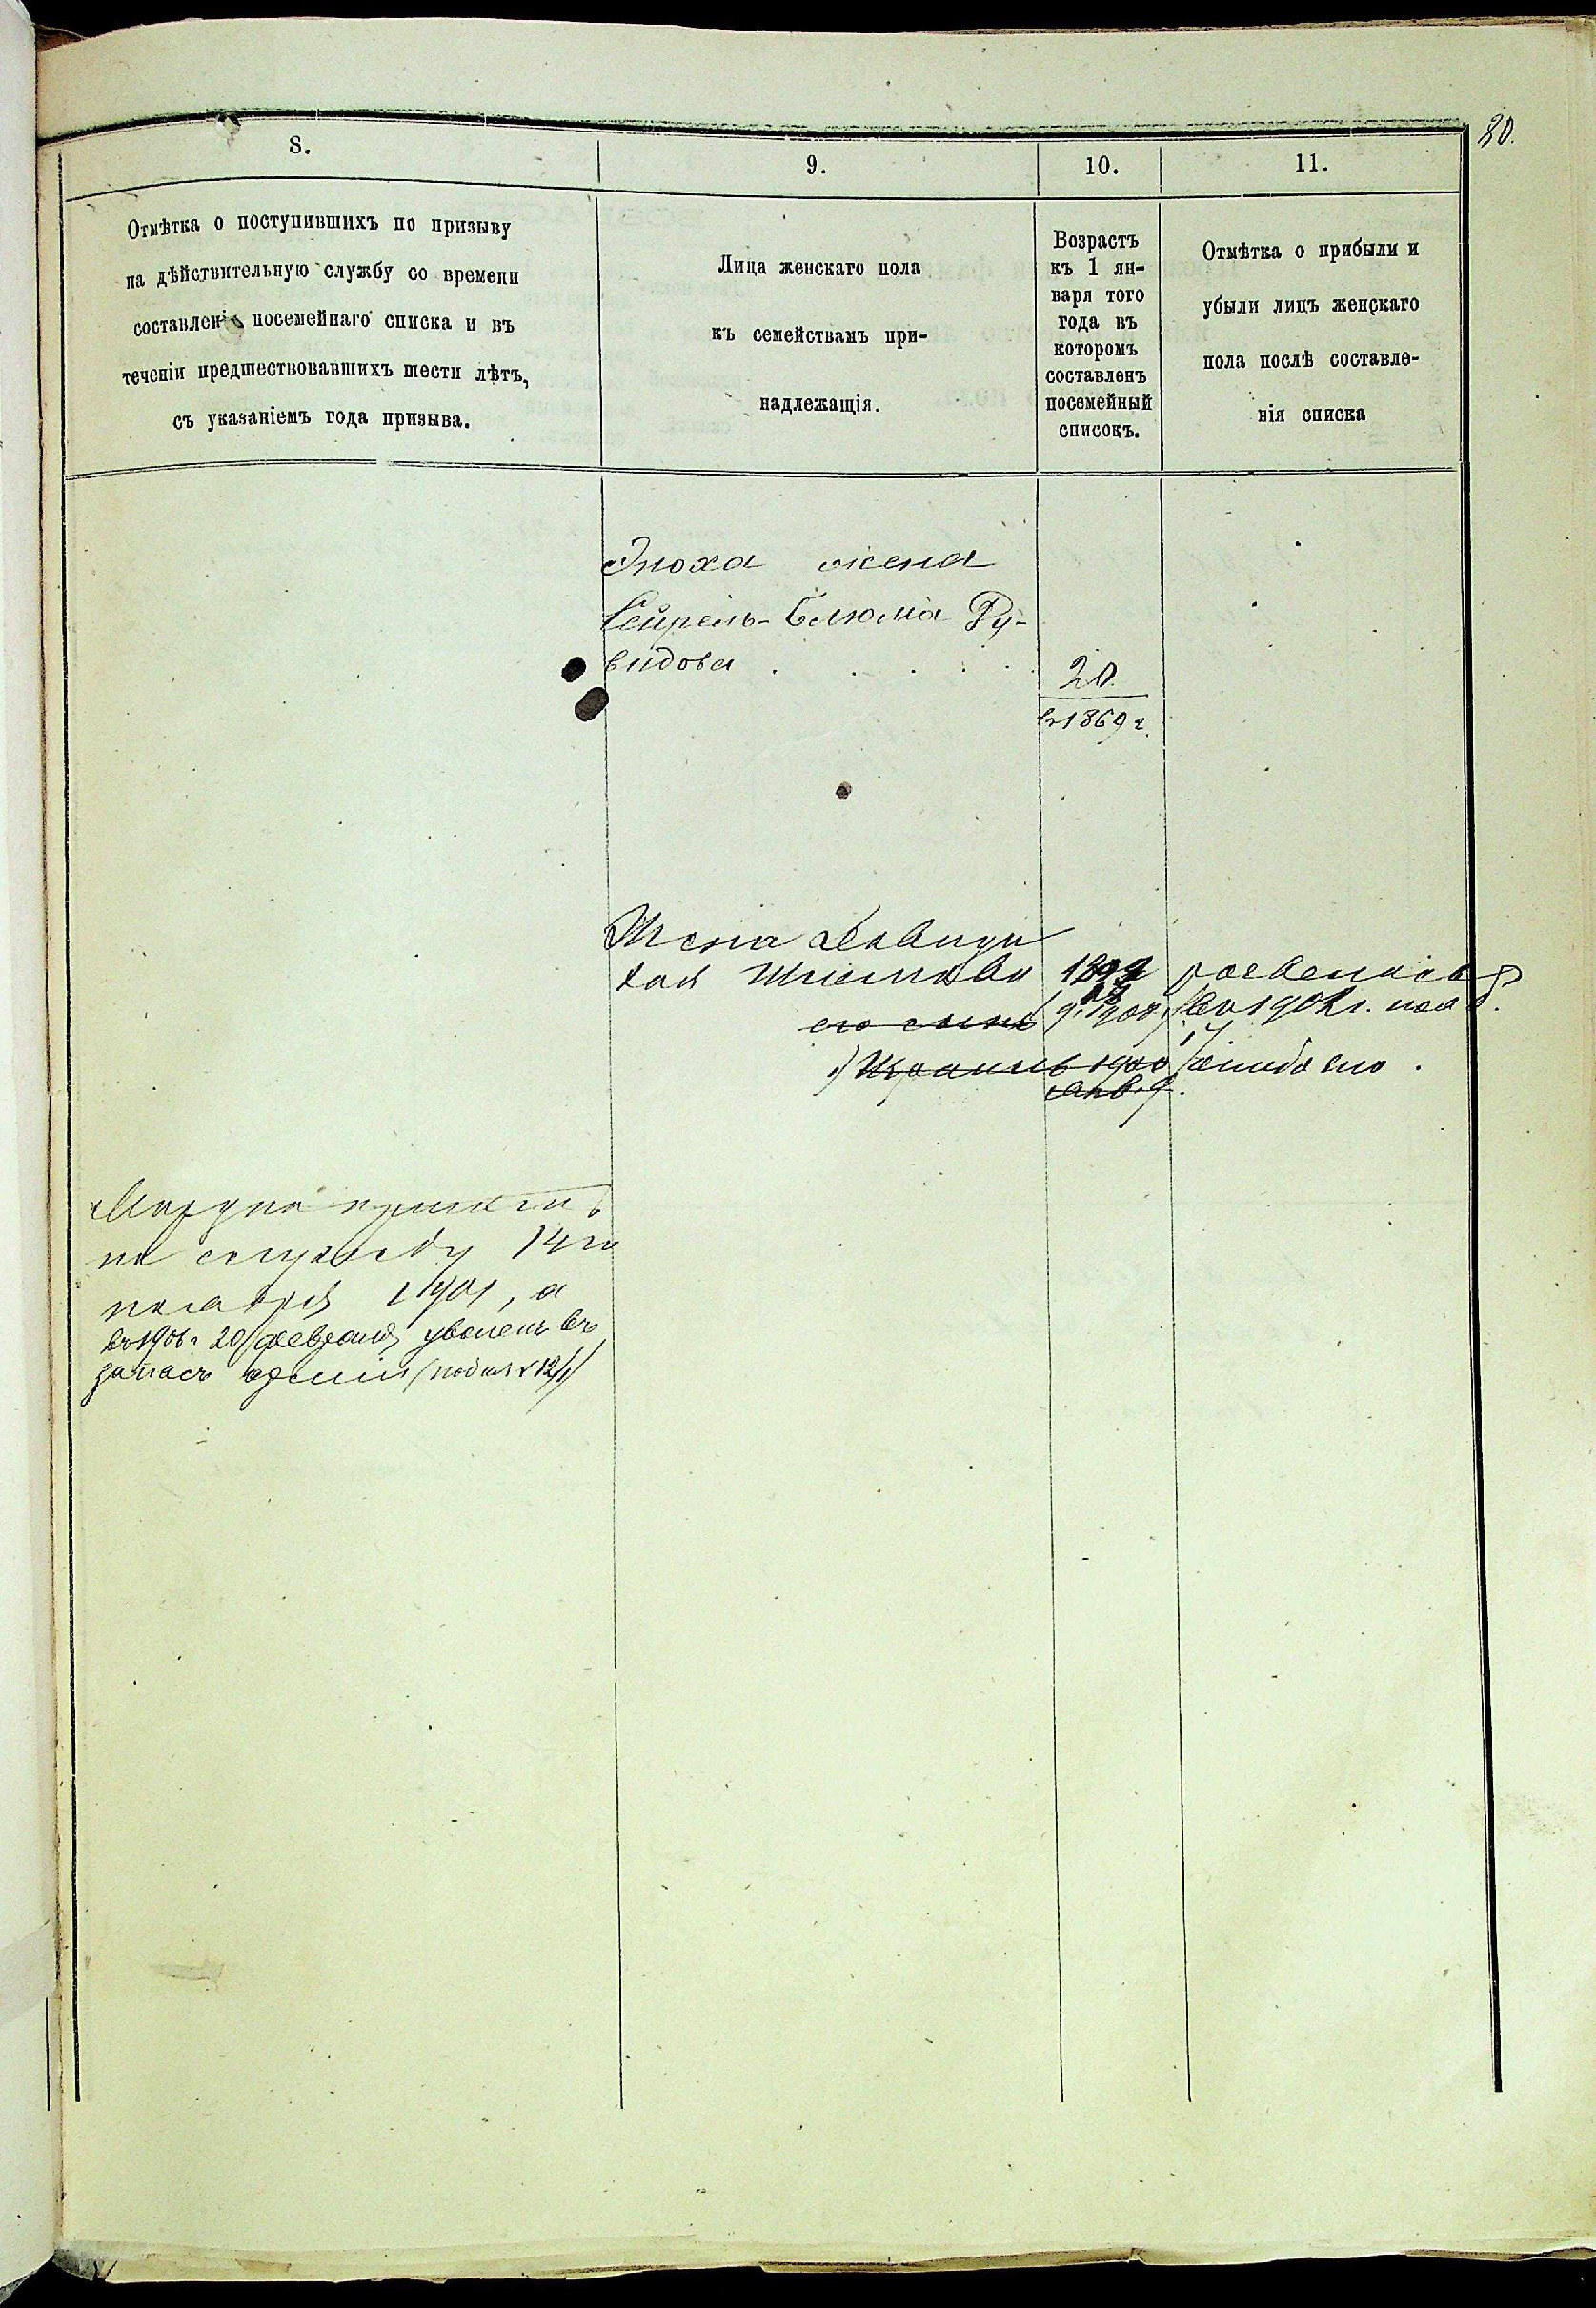 80.
8.
9.
10.
11.
Отмѣтка о поступившихъ по призыву
на дѣйствительную службу со времени
составленія посемейнаго списка и въ
теченіи предшествовавшихъ шести лѣтъ,
съ указаніемъ года призыва.
Лица женскаго пола
къ семействамъ при-
надлежащія.
Возрастъ
къ 1 ян-
варя того
года въ
которомъ
составленъ
посемейный
списокъ.
Отмѣтка о прибыли и
убыли лицъ женскаго
пола послѣ составле-
нія списка
Эноха жена
Сейрель-Блюма Ру-
видова
20.
въ 1869 г.
Жена
его сынъ
Израиль 1900
янв. 9.
ошибочно.
на службу 14го
ноября 1901, а
въ 190 г. 20 февраля уволенъ въ
запасъ арміи